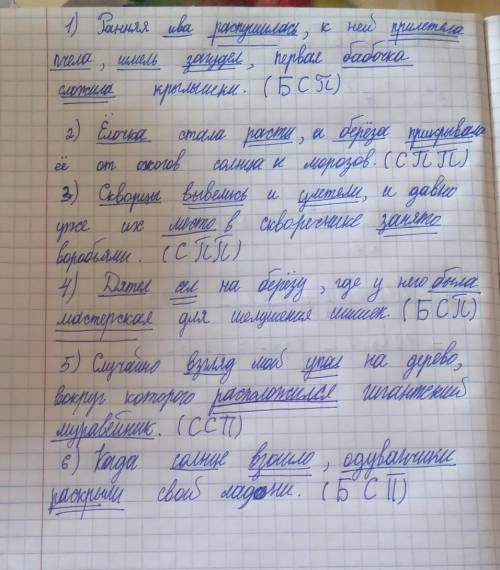 1) Ранняя ива распушилась, к ней прилетела
пчела, шмель загудел, первая бабочка
сложила крылышки. (БСП)
2) Ёлочка стала расти, а берёза прикрывала
её от ожогов солнца и морозов. (СПП)
3) Скворцы вывелись и улетели, и давно
уже их место в скворечнике занято
воробьями. (СПП)
4) Дятел сел на берёзу, где у него была
мастерская для шелушения шишок. (БСП)
5) Случайно взгляд мой упал на дерево,
вокруг которого расположился гигантский
муравейник. (ССП)
6) Када солнце взошло, одуванчики
раскрыли свой ладони. (БСП)